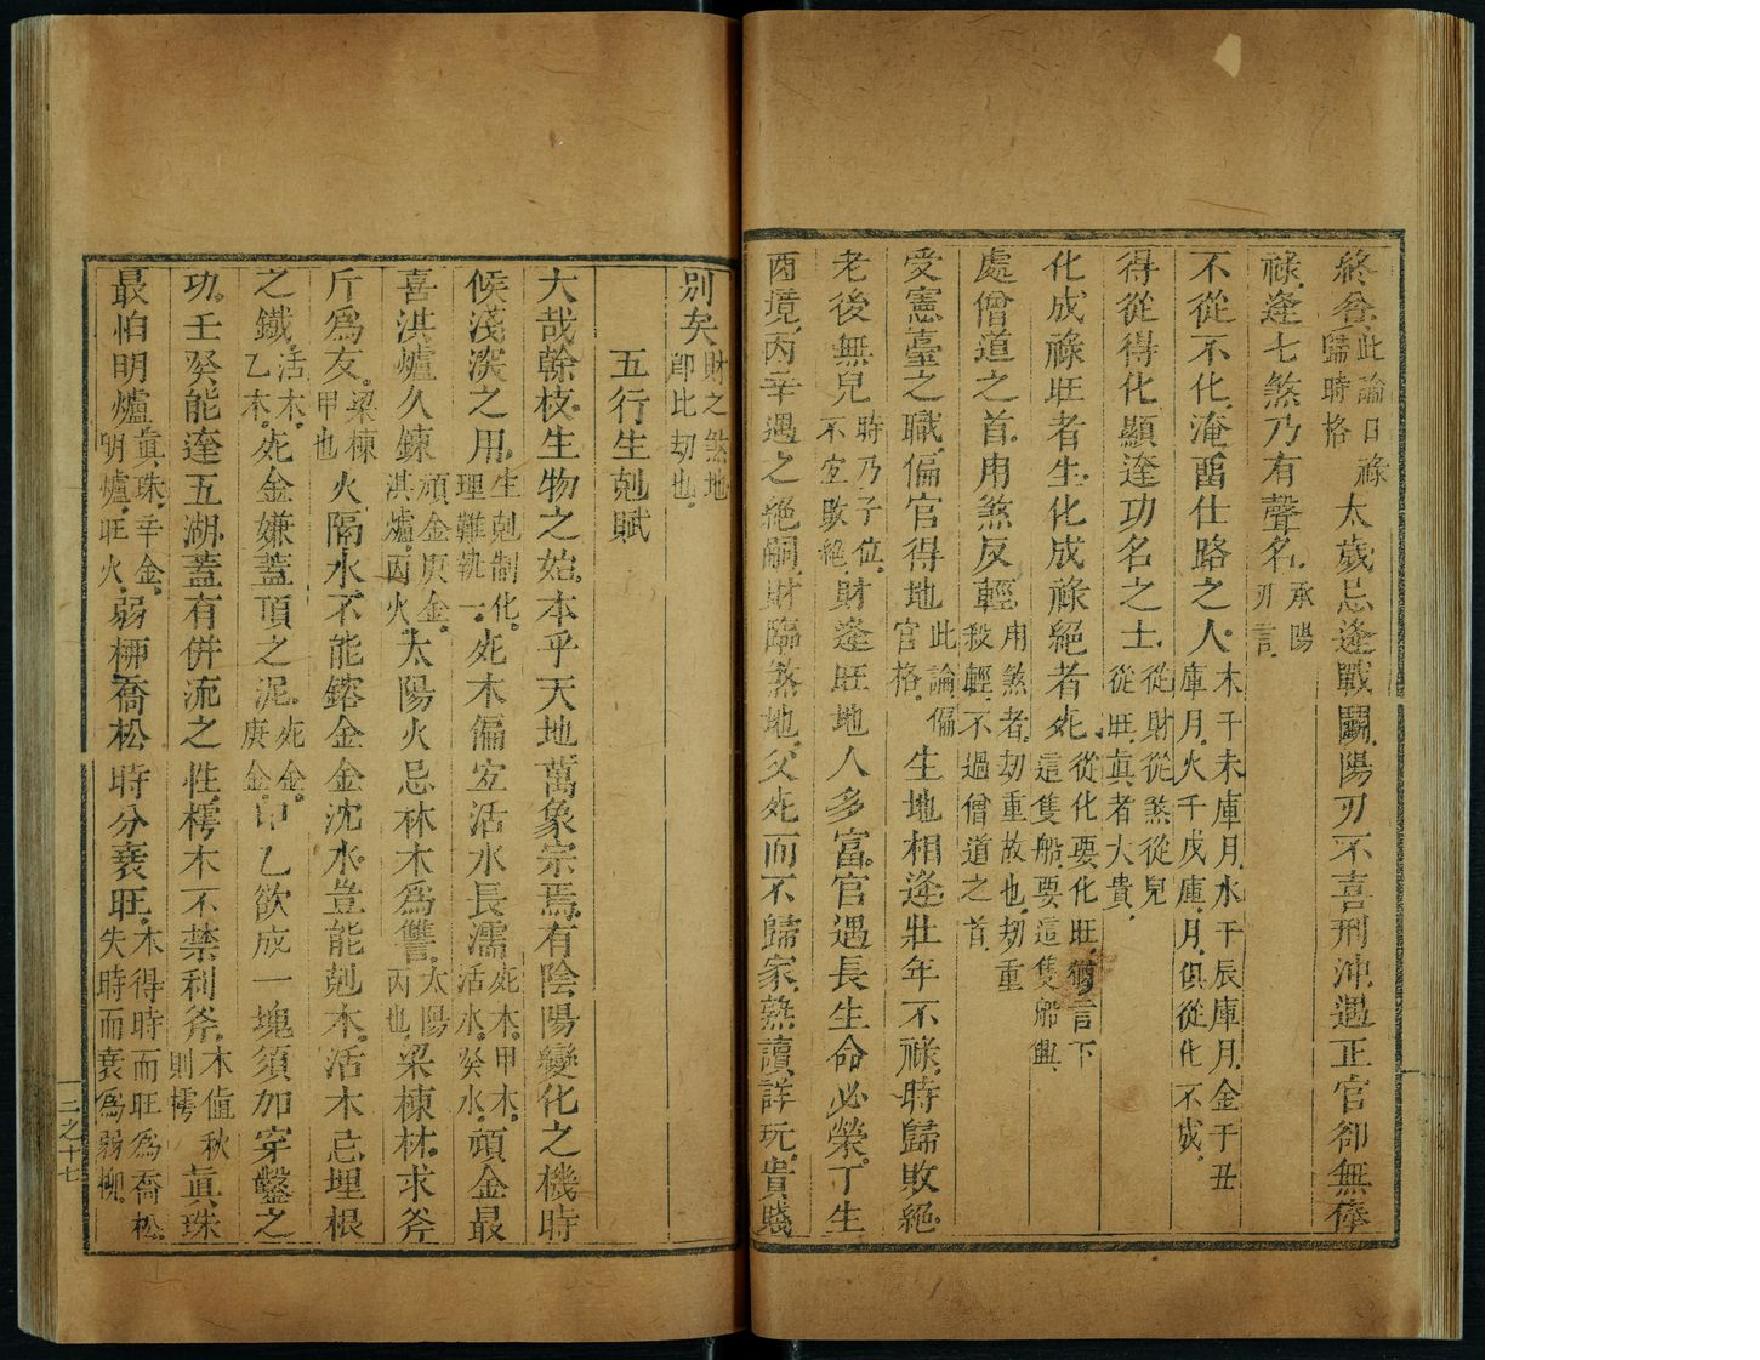 終咎此論日祿歸時格太歲忌逢戰鬭陽刃不喜刑沖遇正官卻無俸
祿逢七煞乃有聲名承陽刃言
不從不化淹畱仕路之人木干未庫月水干辰庫月金干丑庫月火千戌庫月俱從化不成
得從得化顯達功名之士從財從煞從兒從旺眞者大貴
化成祿旺者生化成祿絕者死從化要化旺猶言下這隻船要這隻船與
處僧道之首用煞反輕用煞者刼重故也刼重殺輕不過僧道之首
受憲臺之職偏官得地此論偏官格生地相逢壯年不祿時歸敗絕
老後無兒時乃子位不宜敗絕財逢旺地人多富官遇長生命必榮丁生
酉境丙辛遇之絕嗣財臨煞地父死而不歸家熟讀詳玩貴賤
別矣財之煞地卽比刼也
五行生剋賦
大哉幹枝生物之始本乎天地萬象宗焉有陰陽變化之機時
候淺深之用生剋制化理難執一死木偏宜活水長濡死木甲木活水癸水頑金最
喜洪爐久鍊頑金庚金洪爐丙火太陽火忌林木爲讐太陽丙也梁棟材求斧
斤爲友梁棟甲也火隔水不能鎔金金沈水豈能剋木活木忌埋根
之鐵活木乙木死金嫌蓋頂之泥死金庚金甲乙欲成一塊須加穿鑿之
功壬癸能達五湖蓋有併流之性樗木不禁利斧木值秋則樗眞珠
最怕明爐眞珠辛金明爐旺火弱柳喬松時分衰旺木得時而旺爲喬松失時而衰爲弱柳
三之十七